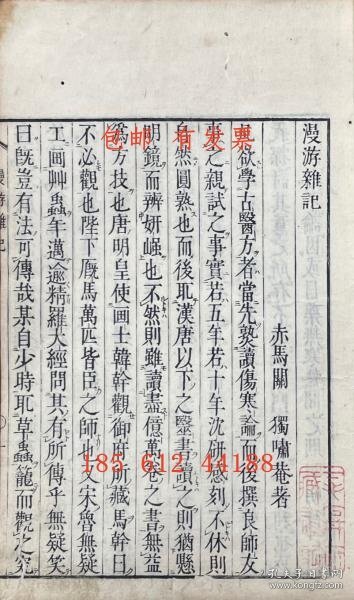 漫游雜記
赤馬關 獨嘯菴著
凡欲學古醫方者當先熟讀傷寒論而後撰良師友
事之親試之事實若五年若十年沈研感刻不休則
自然圓熟也而後取漢唐以下之醫書讀之則猶懸
明鏡而辨妍媸也不然則雖讀盡億萬卷之書無益
爲方技也唐明皇使画士韓幹觀御府所藏馬幹曰
不必觀也陛下厩馬萬匹皆臣之師也又宋曾無疑
工画艸蟲年邁逾精羅大經問其有所傳乎無疑笑
曰旣豈有法可傳哉某自少時取草蟲籠而觀之究
漫游雜記
包邮 有发票
185 612 44188
孔夫子旧书网